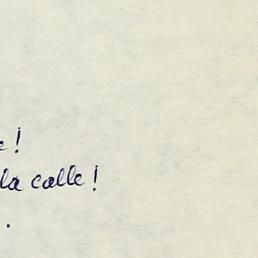 e!
la calle!
.